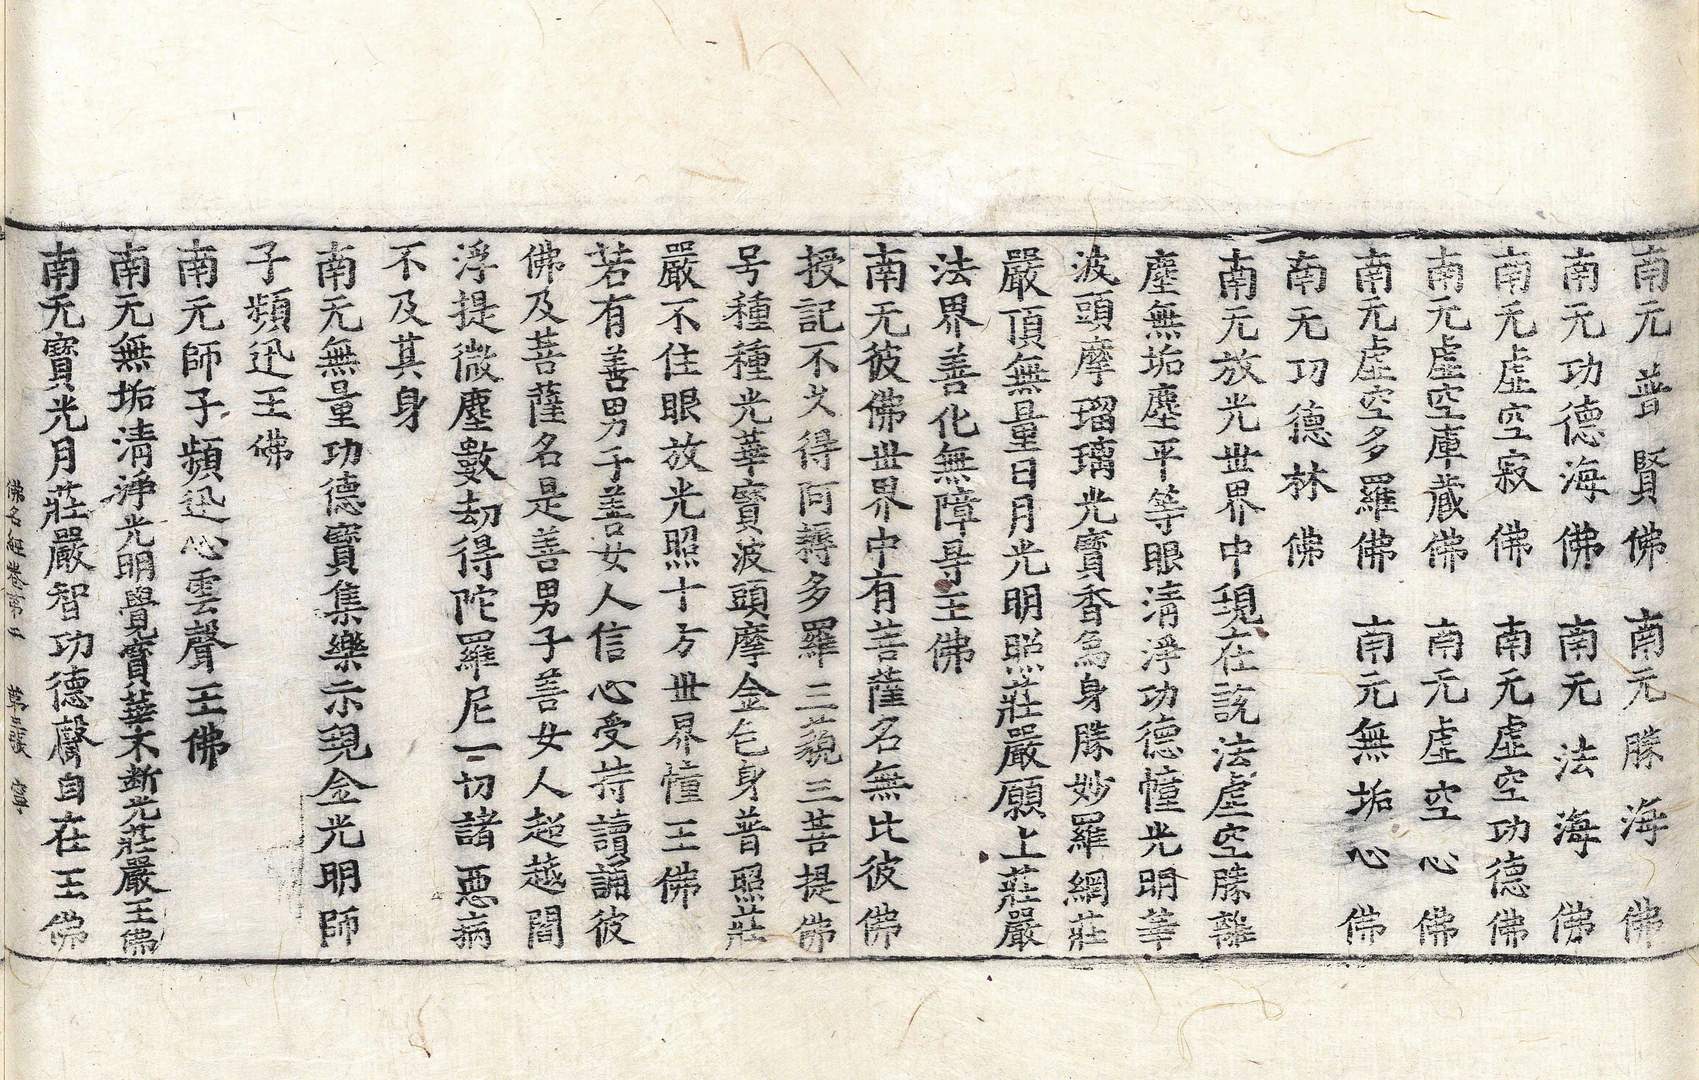 南无普賢佛　南无勝海佛
南无功德海佛　南无法海佛
南无虛空寂佛　南无虛空功德佛
南无虛空庫藏佛　南无虛空心佛
南无虛空多羅佛　南无無垢心佛
南无功德林佛
南无放光世界中現在說法虛空勝離
塵無垢塵平等眼清淨功德幢光明華
波頭摩瑠璃光寶香爲身勝妙羅網莊
嚴頂無量日月光明照莊嚴願上莊嚴
法界善化無障㝵王佛
南无彼佛世界中有菩薩名無比彼佛
授記不久得阿耨多羅三藐三菩提佛
号種種光華寶波頭摩金色身普照莊
嚴不住眼放光照十方世界幢王佛
若有善男子善女人信心受持讀誦彼
佛及菩薩名是善男子善女人超越閻
浮提微塵數劫得陀羅尼一切諸惡病
不及其身
南无無量功德寶集樂示現金光明師
子頻迅王佛
南无師子頻迅心雲聲王佛
南无無垢清淨光明覺寶華不斷光莊嚴王佛
南无寶光月莊嚴智功德聲自在王佛
佛名經卷第五　第三張　寧